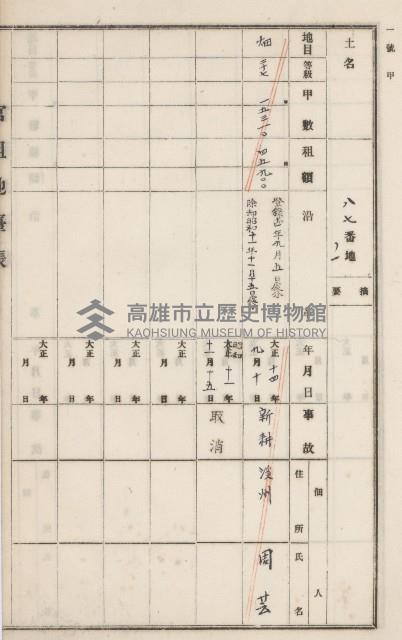 一號甲
土名
八七番地ノ一
摘要
地目
等級
甲數
租額
沿革
年月日
事故
佃人
住所
氏名
畑
三十七
一五三一〇
四五九〇〇
大正十四年
九月十日
新耕
淡州
周芸
除却昭和十一年十一月十五日
昭和
大正十一年
十一月十五日
取消
大正年
月日
大正年
月日
大正年
月日
大正年
月日
官租地臺帳
高雄市立歷史博物館
KAOHSIUNG MUSEUM OF HISTORY